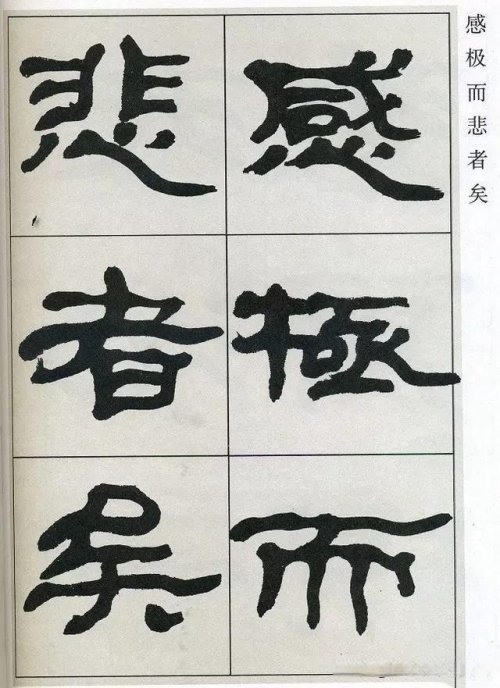 感极而悲者矣
感極而
悲者矣